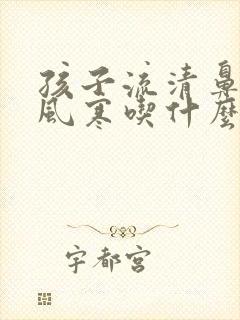 孩子流清鼻
風寒喫什麼
宇都宮